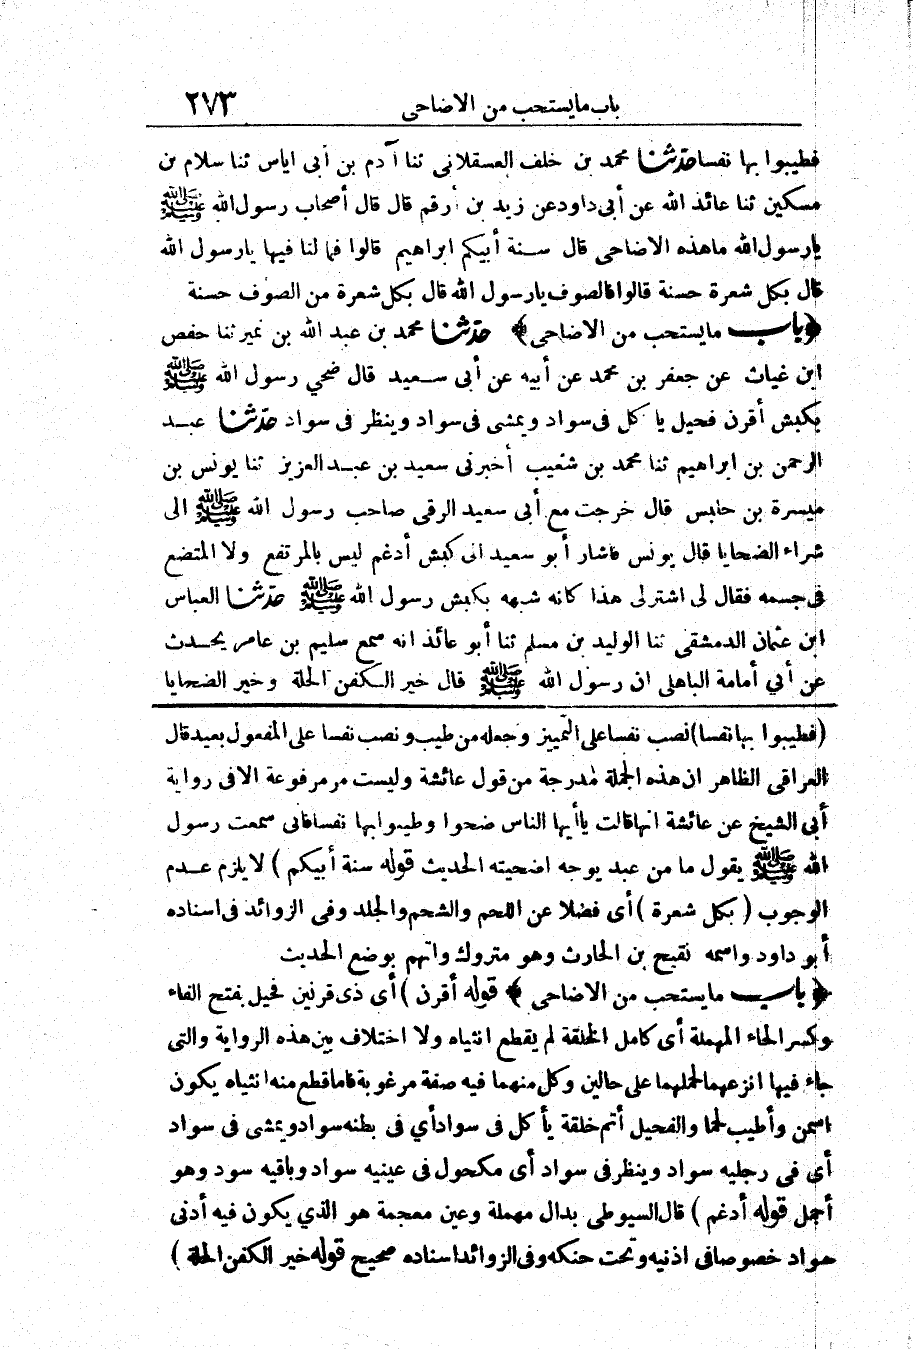 باب ما يستحب من الاضاحى ٢٧٣
فطيبوا بها نفسا حدثنا محمد بن خلف العسقلانى ثنا آدم بن أبى اياس ثنا سلام بن
مسكين ثنا عائذ الله عن أبى داود عن زيد بن أرقم قال قال أصحاب رسول الله ﷺ
يا رسول الله ما هذه الاضاحى قال سنة أبيكم ابراهيم قالوا فما لنا فيها يا رسول الله
قال بكل شعرة حسنة قالوا فالصوف يا رسول الله قال بكل شعرة من الصوف حسنة
﴿باب ما يستحب من الاضاحى﴾ حدثنا محمد بن عبد الله بن نمير ثنا حفص
ابن غياث عن جعفر بن محمد عن أبيه عن أبى سعيد قال ضحي رسول الله ﷺ
بكبش أقرن فحيل يا كل فى سواد ويمشى فى سواد وينظر فى سواد حدثنا عبد
الرحمن بن ابراهيم ثنا محمد بن شعيب أخبرنى سعيد بن عبد العزيز ثنا يونس بن
ميسرة بن حلبس قال خرجت مع أبى سعيد الرقى صاحب رسول الله ﷺ الى
شراء الضحايا قال يونس فاشار أبو سعيد الى كبش أدغم ليس بالمرتفع ولا المتضع
فى جسمه فقال لى اشتر لى هذا كانه شبهه بكبش رسول الله ﷺ حدثنا العباس
ابن عثمان الدمشقى ثنا الوليد بن مسلم ثنا أبو عائذ انه سمع سليم بن عامر يحدث
عن أبي أمامة الباهلى ان رسول الله ﷺ قال خير الكفن الحلة وخير الضحايا
(فطيبوا بها نفسا) نصب نفسا على التمييز وجعله من طيب ونصب نفسا على المفعول بعيد قال
العراقى الظاهر ان هذه الجملة مدرجة من قول عائشة وليست مرمرفوعة الا فى رواية
أبى الشيخ عن عائشة انها قالت يا أيها الناس ضحوا وطيبوا بها نفسا فانى سمعت رسول
الله ﷺ يقول ما من عبد يوجه اضحيته الحديث قوله سنة أبيكم ) لا يلزم عدم
الوجوب ( بكل شعرة ) أى فضلا عن اللحم والشحم والجلد وفى الزوائد فى اسناده
أبو داود واسمه نفيع بن الحارث وهو متروك واتهم بوضع الحديث
﴿باب ما يستحب من الاضاحى﴾ قوله أقرن ) أى ذى قرنين فحيل بفتح الفاء
وكسر الحاء المهملة أى كامل الخلقة لم يقطع انثياه ولا اختلاف بين هذه الرواية والتى
جاء فيها انزعهما لحملهما على حالين وكل منهما فيه صفة مرغوبة فاما قطع منه انثياه يكون
اسمن وأطيب لحما والفحيل أتم خلقة يأكل فى سواد أي فى بطنه سواد ويمشى فى سواد
أى فى رجليه سواد وينظر فى سواد أى مكحول فى عينيه سواد وباقيه سود وهو
أجمل قوله أدغم ) قال السيوطى بدال مهملة وعين معجمة هو الذي يكون فيه أدنى
سواد خصوصا فى اذنيه وتحت حنكه وفى الزوائد اسناده صحيح قوله خير الكفن الحلة )